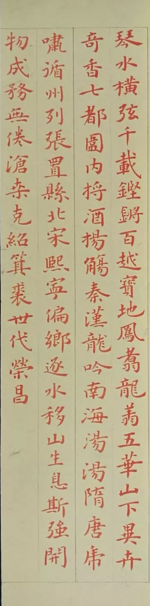 琴水橫弦千載鏗鏘百越寶地鳳翥龍翥五華山下異卉
奇香七都圍内将酒揚觴秦漢龍吟南海湯湯隋唐虎
嘯循州列張置縣北宋熙寧偏鄉逐水移山生息斯強開
物成務無倦滄桑克紹箕裘世代榮昌